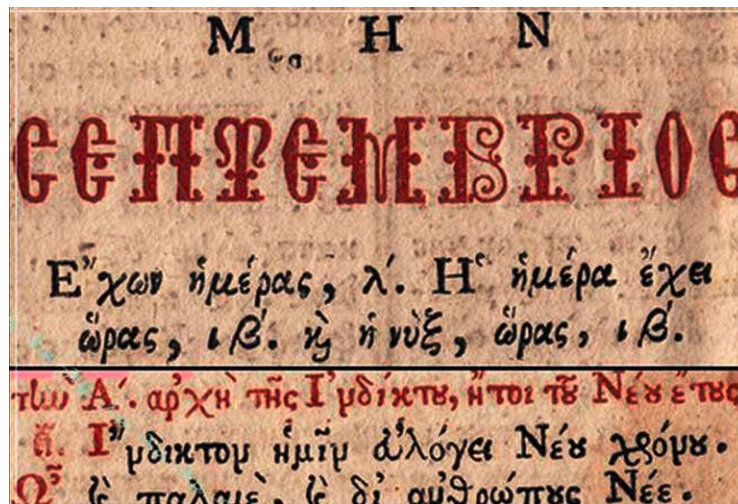 Μ Η Ν
ϹΕΠΤΕΜΒΡΙΟϹ
Ἔχων ἡμέρας, λʹ. Ἡ ἡμέρα ἔχει
ὥρας, ιβʹ. ϗ ἡ νὺξ, ὥρας, ιβʹ.
τῇ Αʹ. ἀρχὴ τῆς Ἰνδίκτȣ, ἤτοι τȣ͂ Νέȣ ἔτȣς
Ἴνδικτον ἡμῖν εὐλόγει Νέȣ χρόνȣ.
Ὦ ϗ παλαιὲ, ϗ δι' ἀνθρώπȣς Νέε.